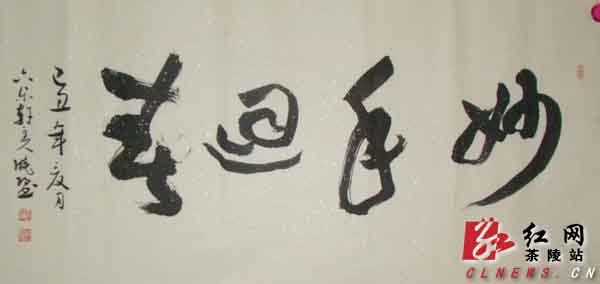 妙手迴春
己丑年夏月
红网
茶陵站
CLNEWS.CN